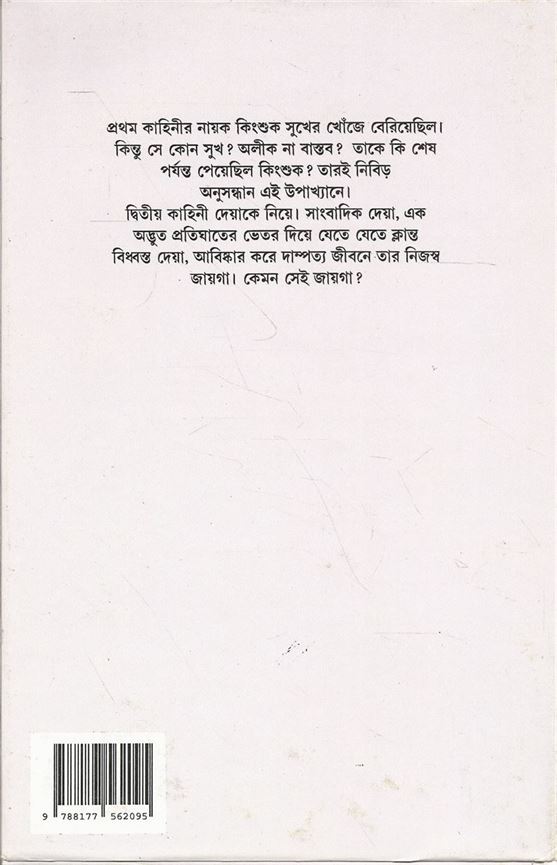 প্রথম কাহিনীর নায়ক কিংশুক সুখের খোঁজে বেরিয়েছিল।
কিন্তু সে কোন সুখ? অলীক না বাস্তব? তাকে কি শেষ
পর্যন্ত পেয়েছিল কিংশুক? তারই নিবিড়
অনুসন্ধান এই উপাখ্যানে।
দ্বিতীয় কাহিনী দেয়াকে নিয়ে। সাংবাদিক দেয়া, এক
অদ্ভুত প্রতিঘাতের ভেতর দিয়ে যেতে যেতে ক্লান্ত
বিধ্বস্ত দেয়া, আবিষ্কার করে দাম্পত্য জীবনে তার নিজস্ব
জায়গা। কেমন সেই জায়গা?
9 788177 562095